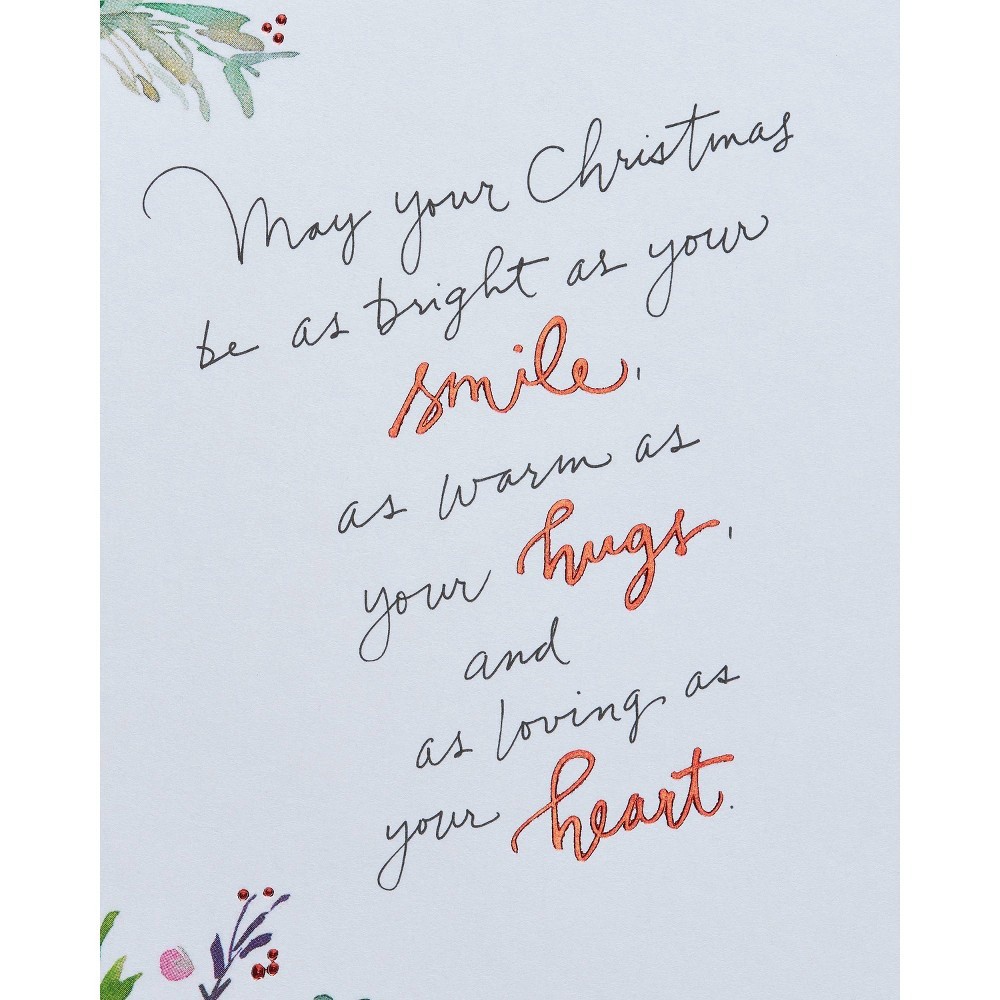 May your Christmas
be as bright as your
smile,
as warm as
your hugs,
and
as loving as
your heart.